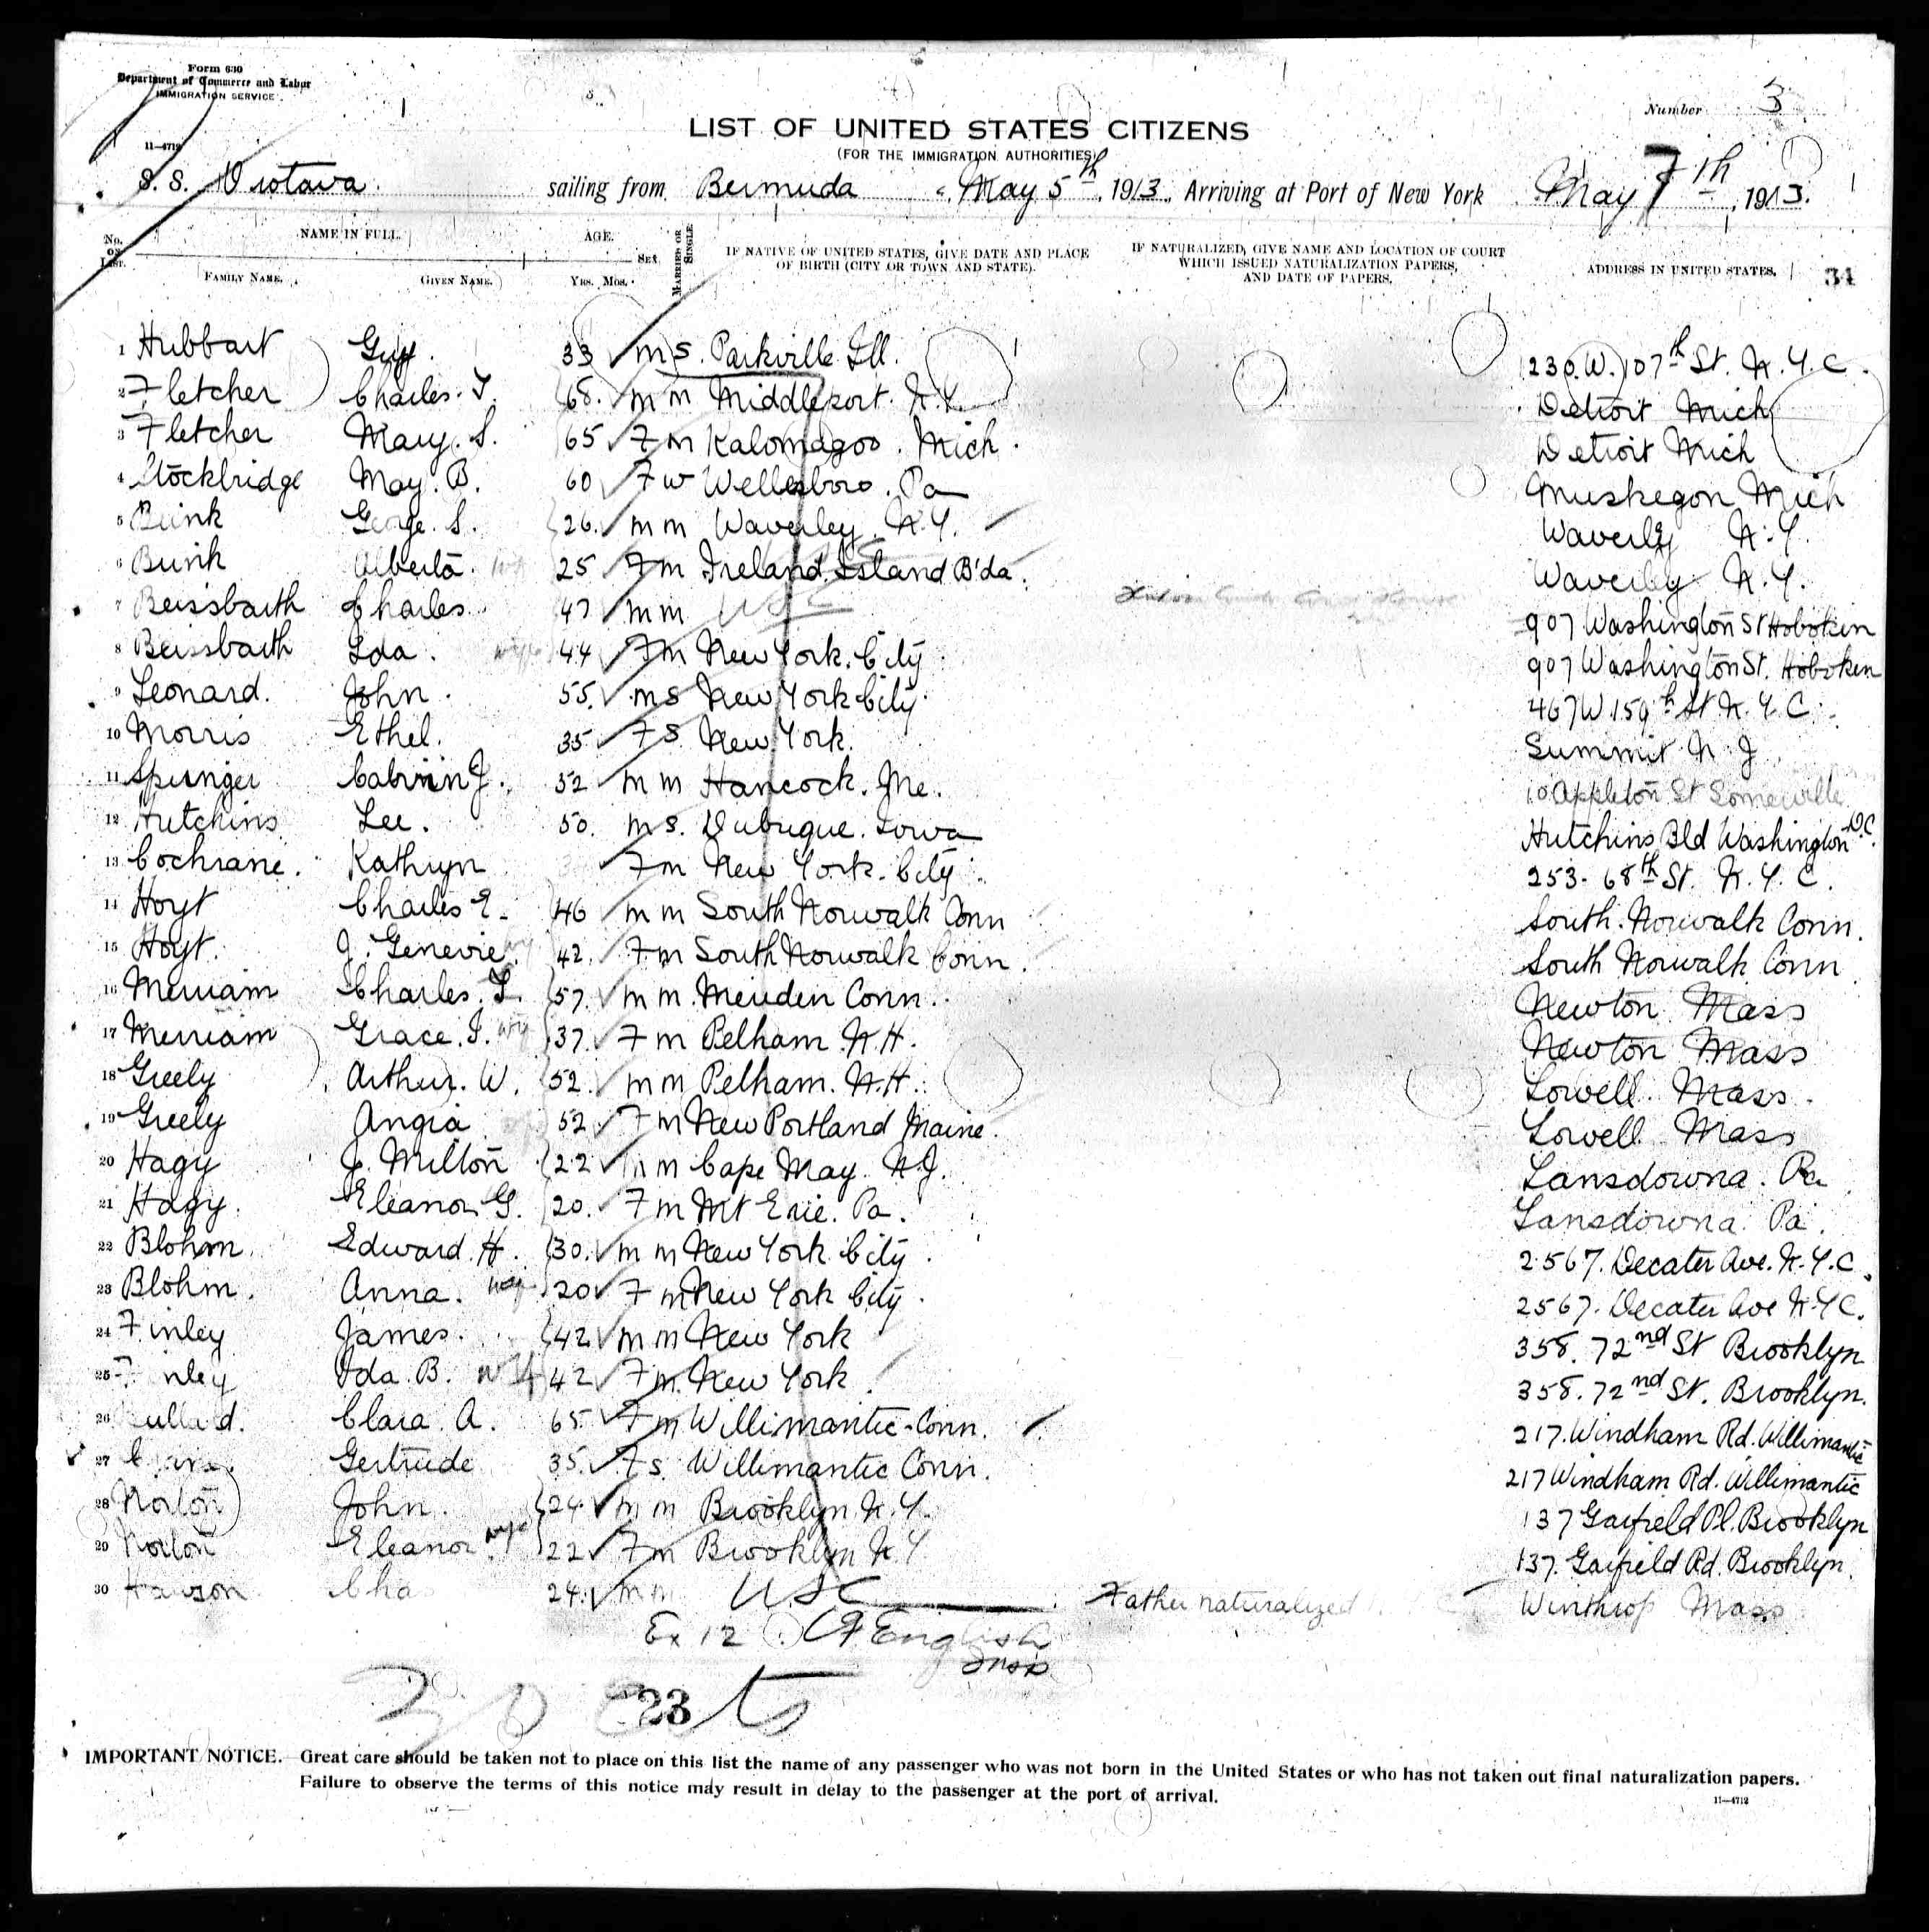 Form 630
Department of Commerce and Labor
IMMIGRATION SERVICE
11—4712
Number 3
LIST OF UNITED STATES CITIZENS
(FOR THE IMMIGRATION AUTHORITIES)
S. S. Orotava sailing from Bermuda, May 5th, 1913, Arriving at Port of New York May 7th, 1913.
No. ON LIST. NAME IN FULL. FAMILY NAME. GIVEN NAME. AGE. YRS. MOS. SEX. MARRIED OR SINGLE. IF NATIVE OF UNITED STATES, GIVE DATE AND PLACE OF BIRTH (CITY OR TOWN AND STATE). IF NATURALIZED, GIVE NAME AND LOCATION OF COURT WHICH ISSUED NATURALIZATION PAPERS, AND DATE OF PAPERS. ADDRESS IN UNITED STATES. 34
1 Hubbart Guy. 33 m s. Parkville Ill. 230. W. 107th St. N. Y. C.
2 Fletcher Charles. T. 68. m m Middleport. N.Y. Detroit Mich
3 Fletcher Mary. S. 65 F m Kalomagoo. Mich. Detroit Mich
4 Stockbridge May. B. 60 F w Wellesboro. Pa Muskegon Mich
5 George. S. 26. m m Waverley. N.Y. Waverly N.Y.
6 Alberta. 25 F m Ireland Island B'da. Waverley N.Y.
7 Beissbarth Charles 47 m m USC 907 Washington St Hoboken
8 Beissbarth Ida. wife 44 F m New York. City. 907 Washington St. Hoboken
9 Leonard. John. 55. m s New York City. 467 W. 159th St. N. Y. C.
10 Morris Ethel. 35 F S. New York. Summit N. J.
11 Calvin J. 52 m m Hancock. Me. 10 Appleton St Somerville
12 Hutchins Lee. 50. m s. Dubuque. Iowa Hutchins Bld Washington D.C.
13 Cochrane. Kathryn F m New York. City. 253. 68th St. N. Y. C.
14 Hoyt Charles E. 46 m m South Norwalk Conn South. Norwalk Conn.
15 Hoyt. J. Genevie. 42. F m South Norwalk Conn. South Norwalk Conn
16 Merriam Charles. 57. m m. Meriden Conn. Newton Mass
17 Merriam Grace. 37. F m Pelham. N.H. Newton Mass
18 Greely Arthur. W. 52. m m Pelham. N.H. Lowell. Mass.
19 Greely Angia 52. F m New Portland Maine. Lowell Mass
20 Hagy J. Milton 22 m m Cape May. N.J. Lansdowna. Pa
21 Hagy. Eleanor G. 20. F m Mt Erie. Pa. Lansdowna. Pa.
22 Blohm. Edward. H. 30. m m New York City. 2567. Decater Ave. N.Y.C.
23 Blohm. Anna. wife 20 F m New York City. 2567. Decater Ave N.Y C.
24 Finley James. 42 m m New York 358. 72nd St Brooklyn
25 Finley Ida. B. wife 42 F m. New York. 358. 72nd St. Brooklyn.
26 Clara. A. 65 F m Willimantic. Conn. 217. Windham Rd. Willimantic
27 Gertrude 35. F s. Willimantic Conn. 217 Windham Rd. Willimantic
28 Norton John. 24. m m Brooklyn N.Y. 137 Garfield Pl. Brooklyn
29 Norton Eleanor. wife 22 F m Brooklyn N.Y 137. Garfield Rd. Brooklyn.
30 Chas 24. m m USC Father naturalized Winthrop Mass
Ex 12 English
23
IMPORTANT NOTICE. Great care should be taken not to place on this list the name of any passenger who was not born in the United States or who has not taken out final naturalization papers.
Failure to observe the terms of this notice may result in delay to the passenger at the port of arrival.
11—4712